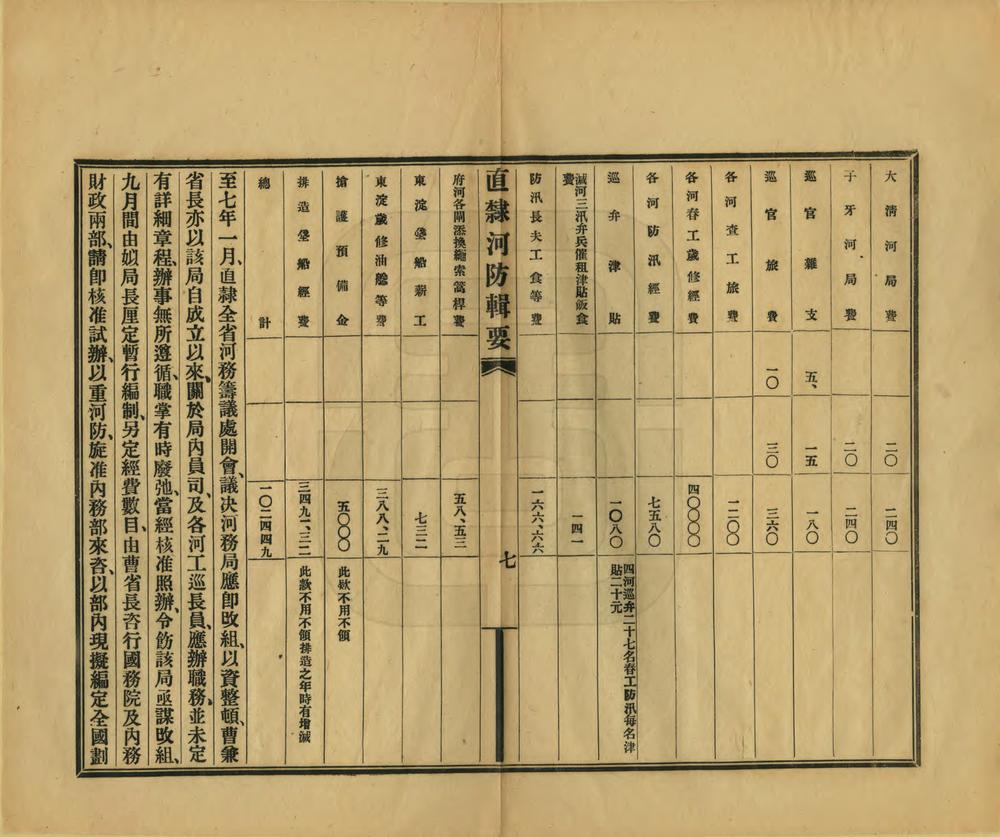 大清河局費 二〇 二四〇
子牙河局費 二〇 二四〇
巡官雜支 五、 一五 一八〇
巡官旅費 一〇 三〇 三六〇
各河查工旅費 一二〇〇
各河春工歲修經費 四〇〇〇〇
各河防汛經費 七五八〇
巡弁津貼 一〇八〇 四河巡弁二十七名春工防汛每名津貼二十元
減河三汛弁兵催租津貼飯食費 一四一
防汛長夫工食等費 一六六、六六
直隸河防輯要 七
府河各閘添換纜索篙桿費 五八、五三
東淀垡船薪工 七三二
東淀歲修油艌等費 三八八、二九
搶護預備金 五〇〇〇 此欵不用不領
排造垡船經費 三四九一、三二 此欵不用不領排造之年時有增減
總計 一〇二四四九
至七年一月、直隸全省河務籌議處開會、議決河務局應卽改組、以資整頓、曹兼
省長亦以該局自成立以來、關於局內員司、及各河工巡長員、應辦職務、並未定
有詳細章程、辦事無所遵循、職掌有時廢弛、當經核准照辦、令飭該局亟謀改組、
九月間由姒局長厘定暫行編制、另定經費數目、由曹省長咨行國務院及內務
財政兩部、請卽核准試辦、以重河防、旋准內務部來咨、以部內現擬編定全國劃